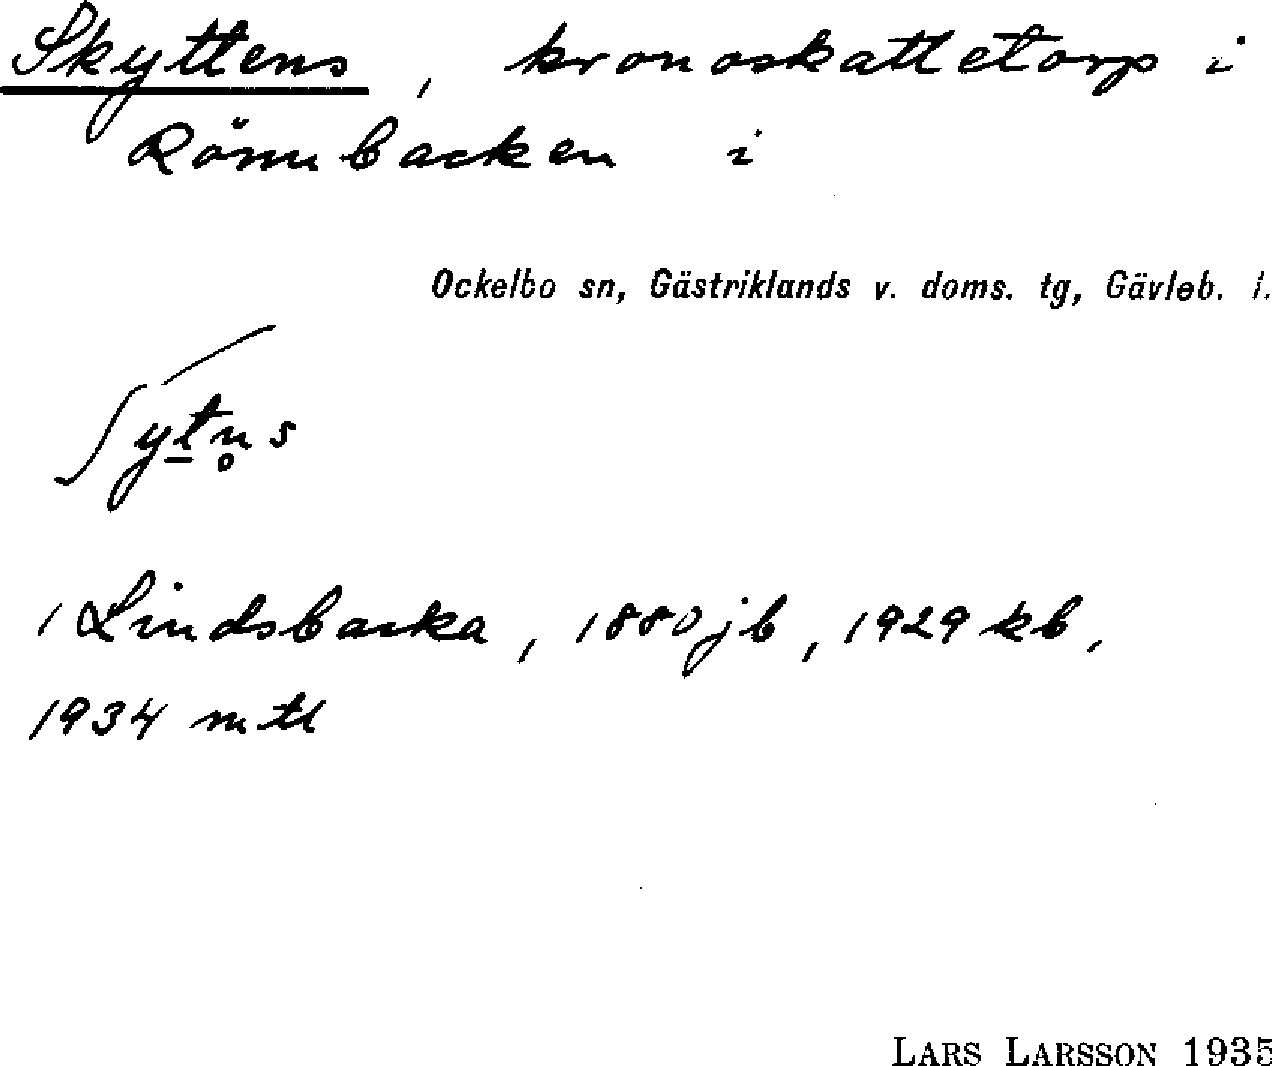 Skyttens, kronoskattetorp i
Rönnbacken i
Ockelbo sn, Gästriklands v. doms. tg, Gävleb. l.
ʃýt̲n̥s
1 Lindsbacka, 1880 jb, 1929 kb,
1934 mtl
LARS LARSSON 1935